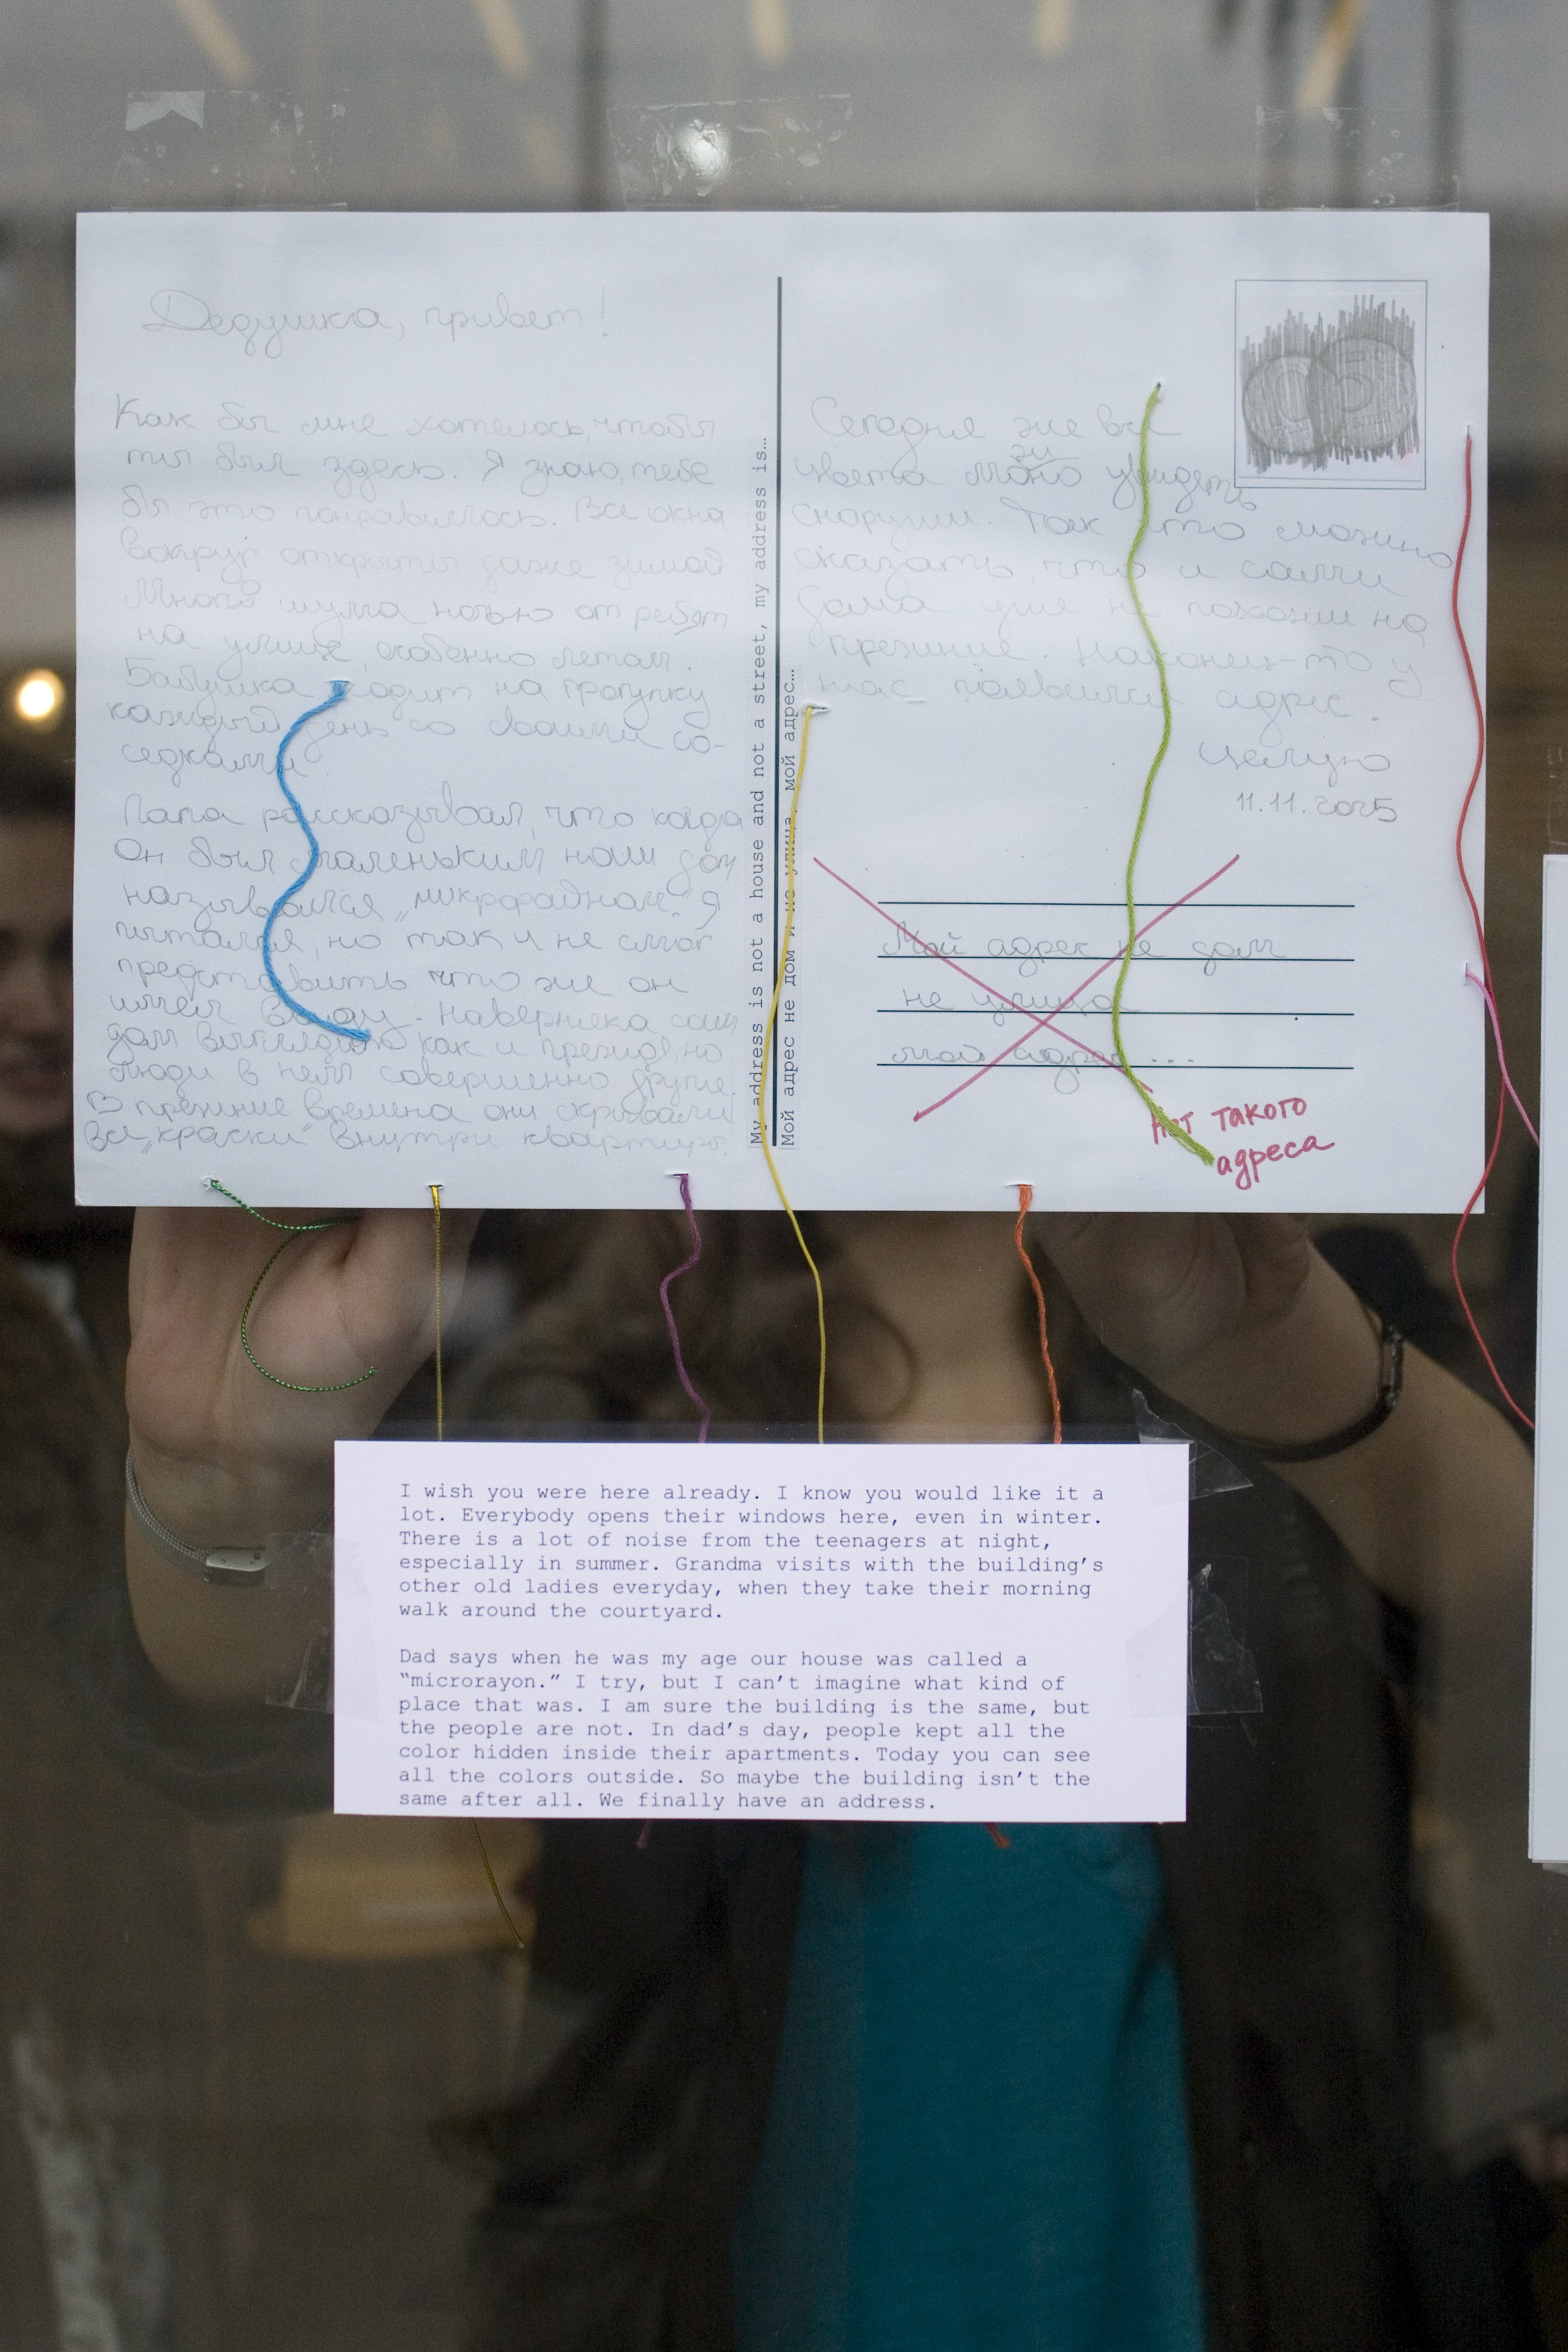 Дедушка, привет!
Как бы мне хотелось, чтобы
ты был здесь. Я знаю, тебе
бы это понравилось. Все окна
вокруг открыты, даже зимой
Много шума ночью от ребят
на улице, особенно летом.
Бабушка ходит на прогулку
каждый день со своими со-
седками
Папа рассказывал, что когда
Он был маленьким наш дом
назывался „микрорайном". Я
пытался, но так и не смог
представить что же он
имел ввиду. Наверняка сам
дом выглядил как и прежде, но
люди в нем совершенно другие.
В прежние времена они скрывали
все „краски" внутри квартиры.
My address is not a house and not a street, my address is...
Мой адрес не дом и не улица, мой адрес...
Сегодня же все
цвета можно увидеть
снаружи. Так что можно
сказать, что и сами
дома уже не похожи на
прежние. Наконец-то у
нас появился адрес.
Целую
11.11.2025
Мой адрес не дом
не улица
мой адрес ...
нет такого
адреса
I wish you were here already. I know you would like it a
lot. Everybody opens their windows here, even in winter.
There is a lot of noise from the teenagers at night,
especially in summer. Grandma visits with the building's
other old ladies everyday, when they take their morning
walk around the courtyard.
Dad says when he was my age our house was called a
“microrayon.” I try, but I can't imagine what kind of
place that was. I am sure the building is the same, but
the people are not. In dad's day, people kept all the
color hidden inside their apartments. Today you can see
all the colors outside. So maybe the building isn't the
same after all. We finally have an address.